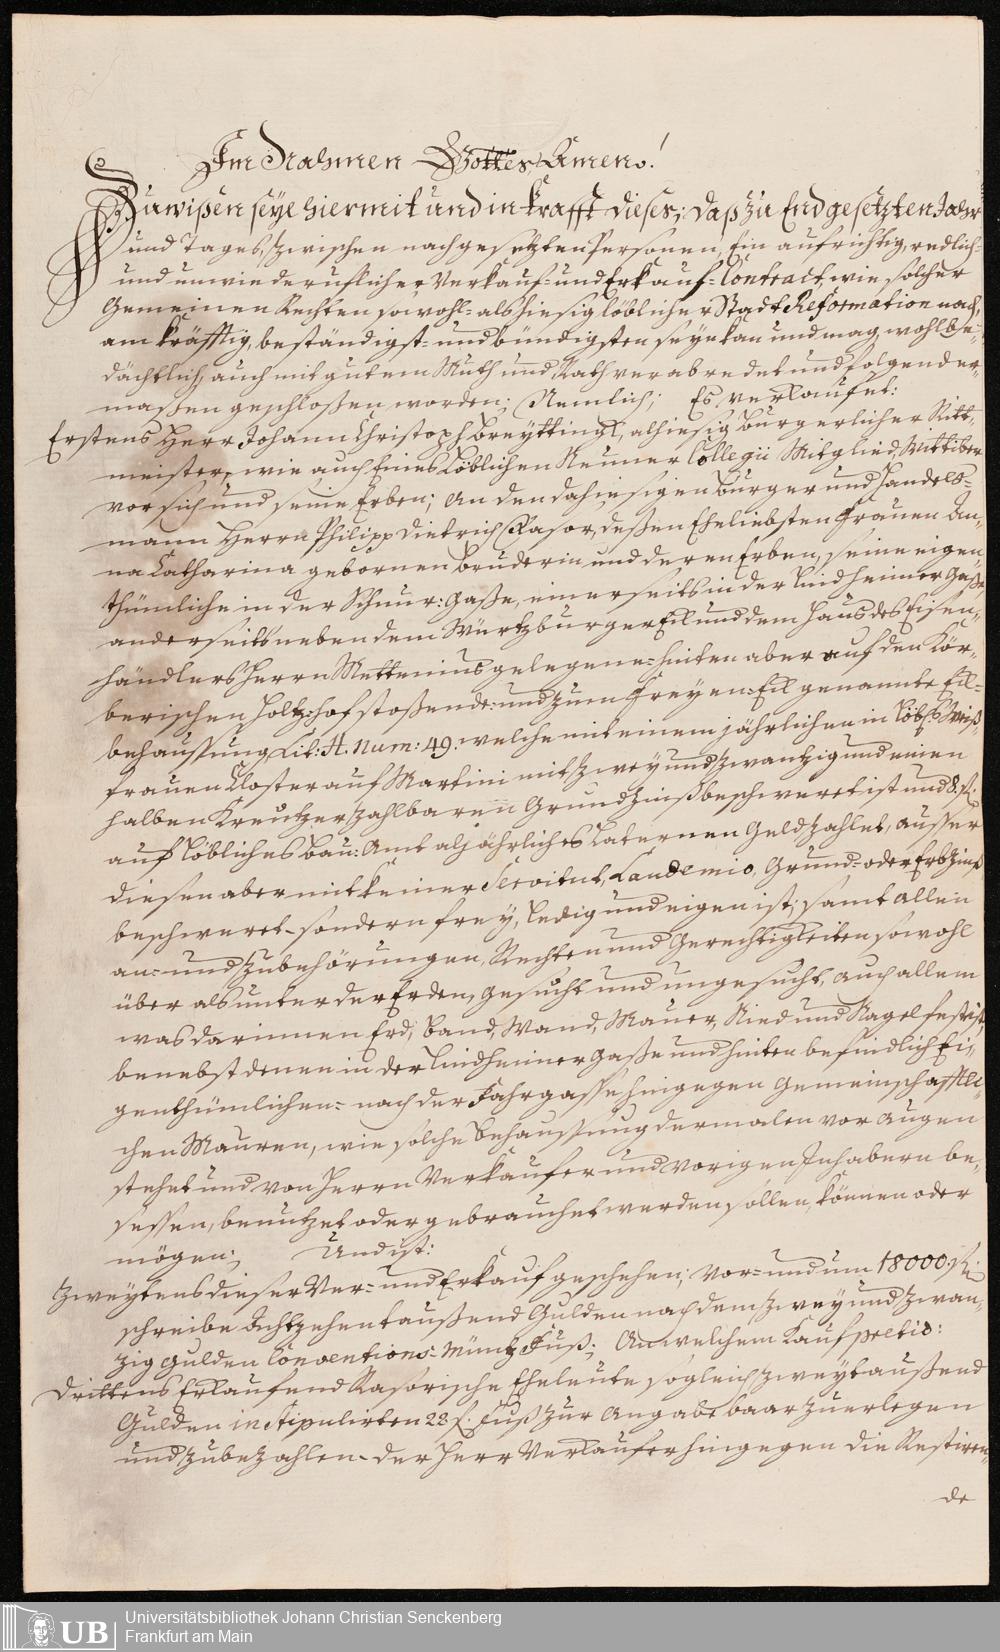 Im Nahmen Gottes Amen!
Zu wißen seye hiermit und in krafft dieses; daß zu End gesetzten Jahr
und Tages, zwischen nachgesetzten Personen, Ein aufrichtig, redlich-
und unwiederuflicher Verkauf- und Erkauf-Contract, wie solcher
Gemeinen Rechten sowohl- als hiesig löblicher Stadt Reformation nach,
am kräfftig, beständigst- und bündigsten seyn kan und mag, wohlbe-
dächtlich, auch mit gutem Muth und Rath verabredet und folgender-
maßen geschloßen worden; Nemlich; Es verkaufet:
Erstens Herr Johann Christoph Breytting, alhiesig Burgerlicher Ritt-
meister, wie auch Eines Löblichen Neuner Collegii Mitglied, Wittiber
vor sich und seine Erben; An den dahiesigen Burger und Handels-
mann Herrn Philipp Dietrich Rasor, deßen Eheliebsten Frauen An-
na Catharina gebornen Bruderin und deren Erben, seine eigen-
thümliche in der Schnur: Gaße, einerseits in der Lindheimer Gaße,
anderseits neben dem Würtzburger Eck und dem Hauß des Eisen-
händlers Herrn Mettenius gelegene- hinten aber auf den Kör-
berischen Holtz: hof stoßende- und zum Freyen: Eck genannte Eck-
behaussung Lit: H. Num: 49. welche mit einem jährlichen in Löbl. Weiß-
frauen Closter auf Martini mit zwey und zwantzig und einen
halben Kreutzer zahlbaren Grundzinß beschweret ist und 8. fl.
auf löbliches Bau: Amt aljährliches Laternen Geld zahlet, ausser
diesen aber mit keiner Servitut, Laudemio, Grund- oder Erbzinß
beschweret- sondern frey, ledig und eigen ist; samt allen
an- und Zubehörungen, Rechten und Gerechtigkeiten sowohl
über als unter der Erden, gesucht und ungesucht, auch allem
was darinnen Erd, Band, Wand, Mauer, Nied und Nagelfest ist,
benebst denen in der Lindheimer Gaße und hinten befindlich Ei-
genthümlichen- nach der Fahrgasse hingegen Gemeinschafftli-
chen Mauren, wie solche Behaussung dermalen vor Augen
stehet und von Herrn Verkäufer und vorigen Inhabern be-
sessen, benutzet oder gebrauchet werden sollen, können oder
mögen; Und ist:
Zweytens dieser Ver- und Erkauf geschehen; Vor- und um 18000. fl.
schreibe Achtzehentaußend Gulden nach dem zwey und zwan-
zig Gulden Conventions: Müntz Fuß; An welchem Kaufpretio:
Drittens Erkaufend Rasorische Eheleute sogleich zweytaußend
Gulden in stipulirten 22 f. Fuß zur Angabe baar zu erlegen
und zu bezahlen- der Herr Verkäufer hingegen die Restiren-
de
UB
Universitätsbibliothek Johann Christian Senckenberg
Frankfurt am Main